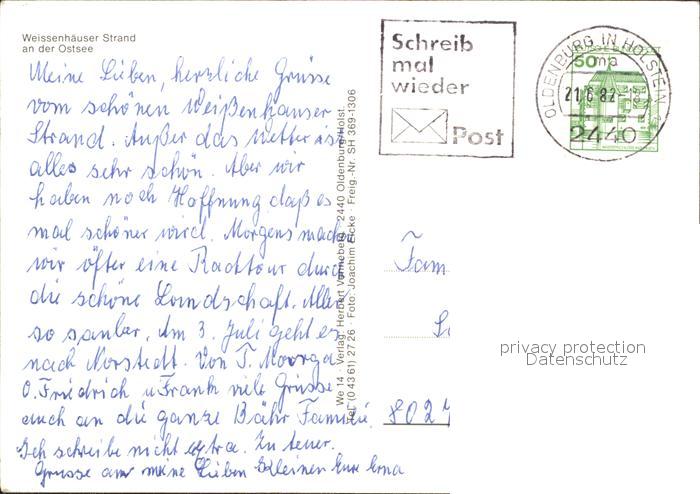 Weissenhäuser Strand
an der Ostsee
Meine Lieben, herzliche Grüsse
vom schönen Weißenhäuser
Strand. Außer das Wetter ist
alles sehr schön. Aber wir
haben noch Hoffnung daß es
mal schöner wird. Morgens mache
wir öfter eine Radtour durch
die schöne Landschaft. Alles
so sauber. Am 3. Juli geht es
nach Norstedt. Von T.
O. Friedrich u Frank viele Grüsse
auch an die ganze Bähr Familie.
Ich schreibe nicht extra. Zu teuer.
Grüsse an meine Lieben Kleinen Eure Erna
We 14 · Verlag: Herbert 2440 Oldenburg/Holst.
Tel. (0 43 61) 27 26 · Foto: Joachim Eicke · Freig.-Nr. SH 369-1306
Schreib
mal
wieder
Post
OLDENBURG IN HOLSTEIN
21.6.82
2440
50
Fam
802
privacy protection
Datenschutz